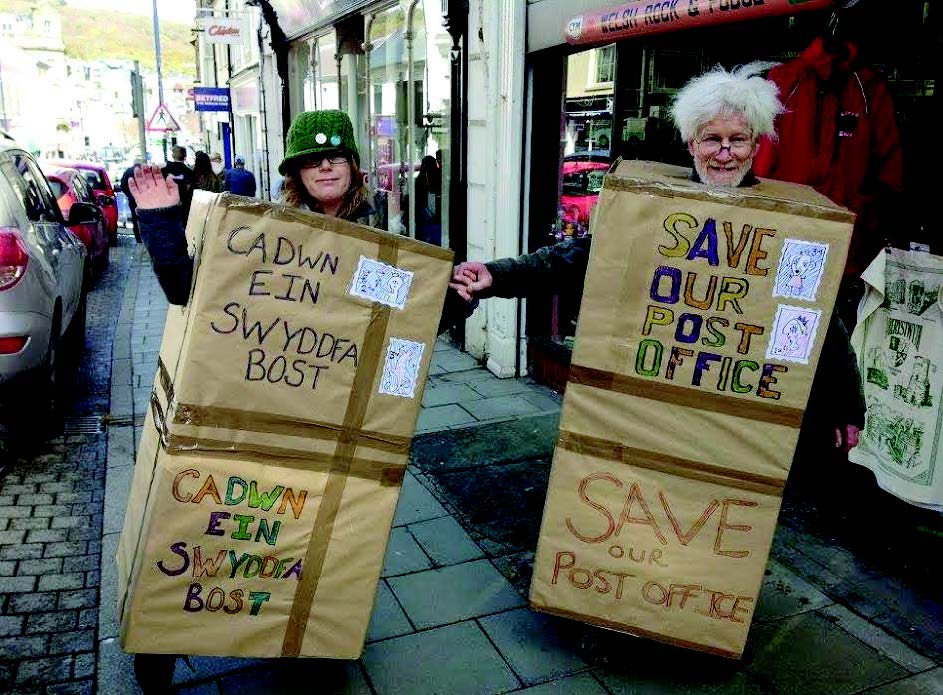 WELSH ROCK & FUDGE
Clarks
BETFRED
CADWN
EIN
SWYDDFA
BOST
CADWN
EIN
SWYDDFA
BOST
SAVE
OUR
POST
OFFICE
SAVE
OUR
POST OFFICE